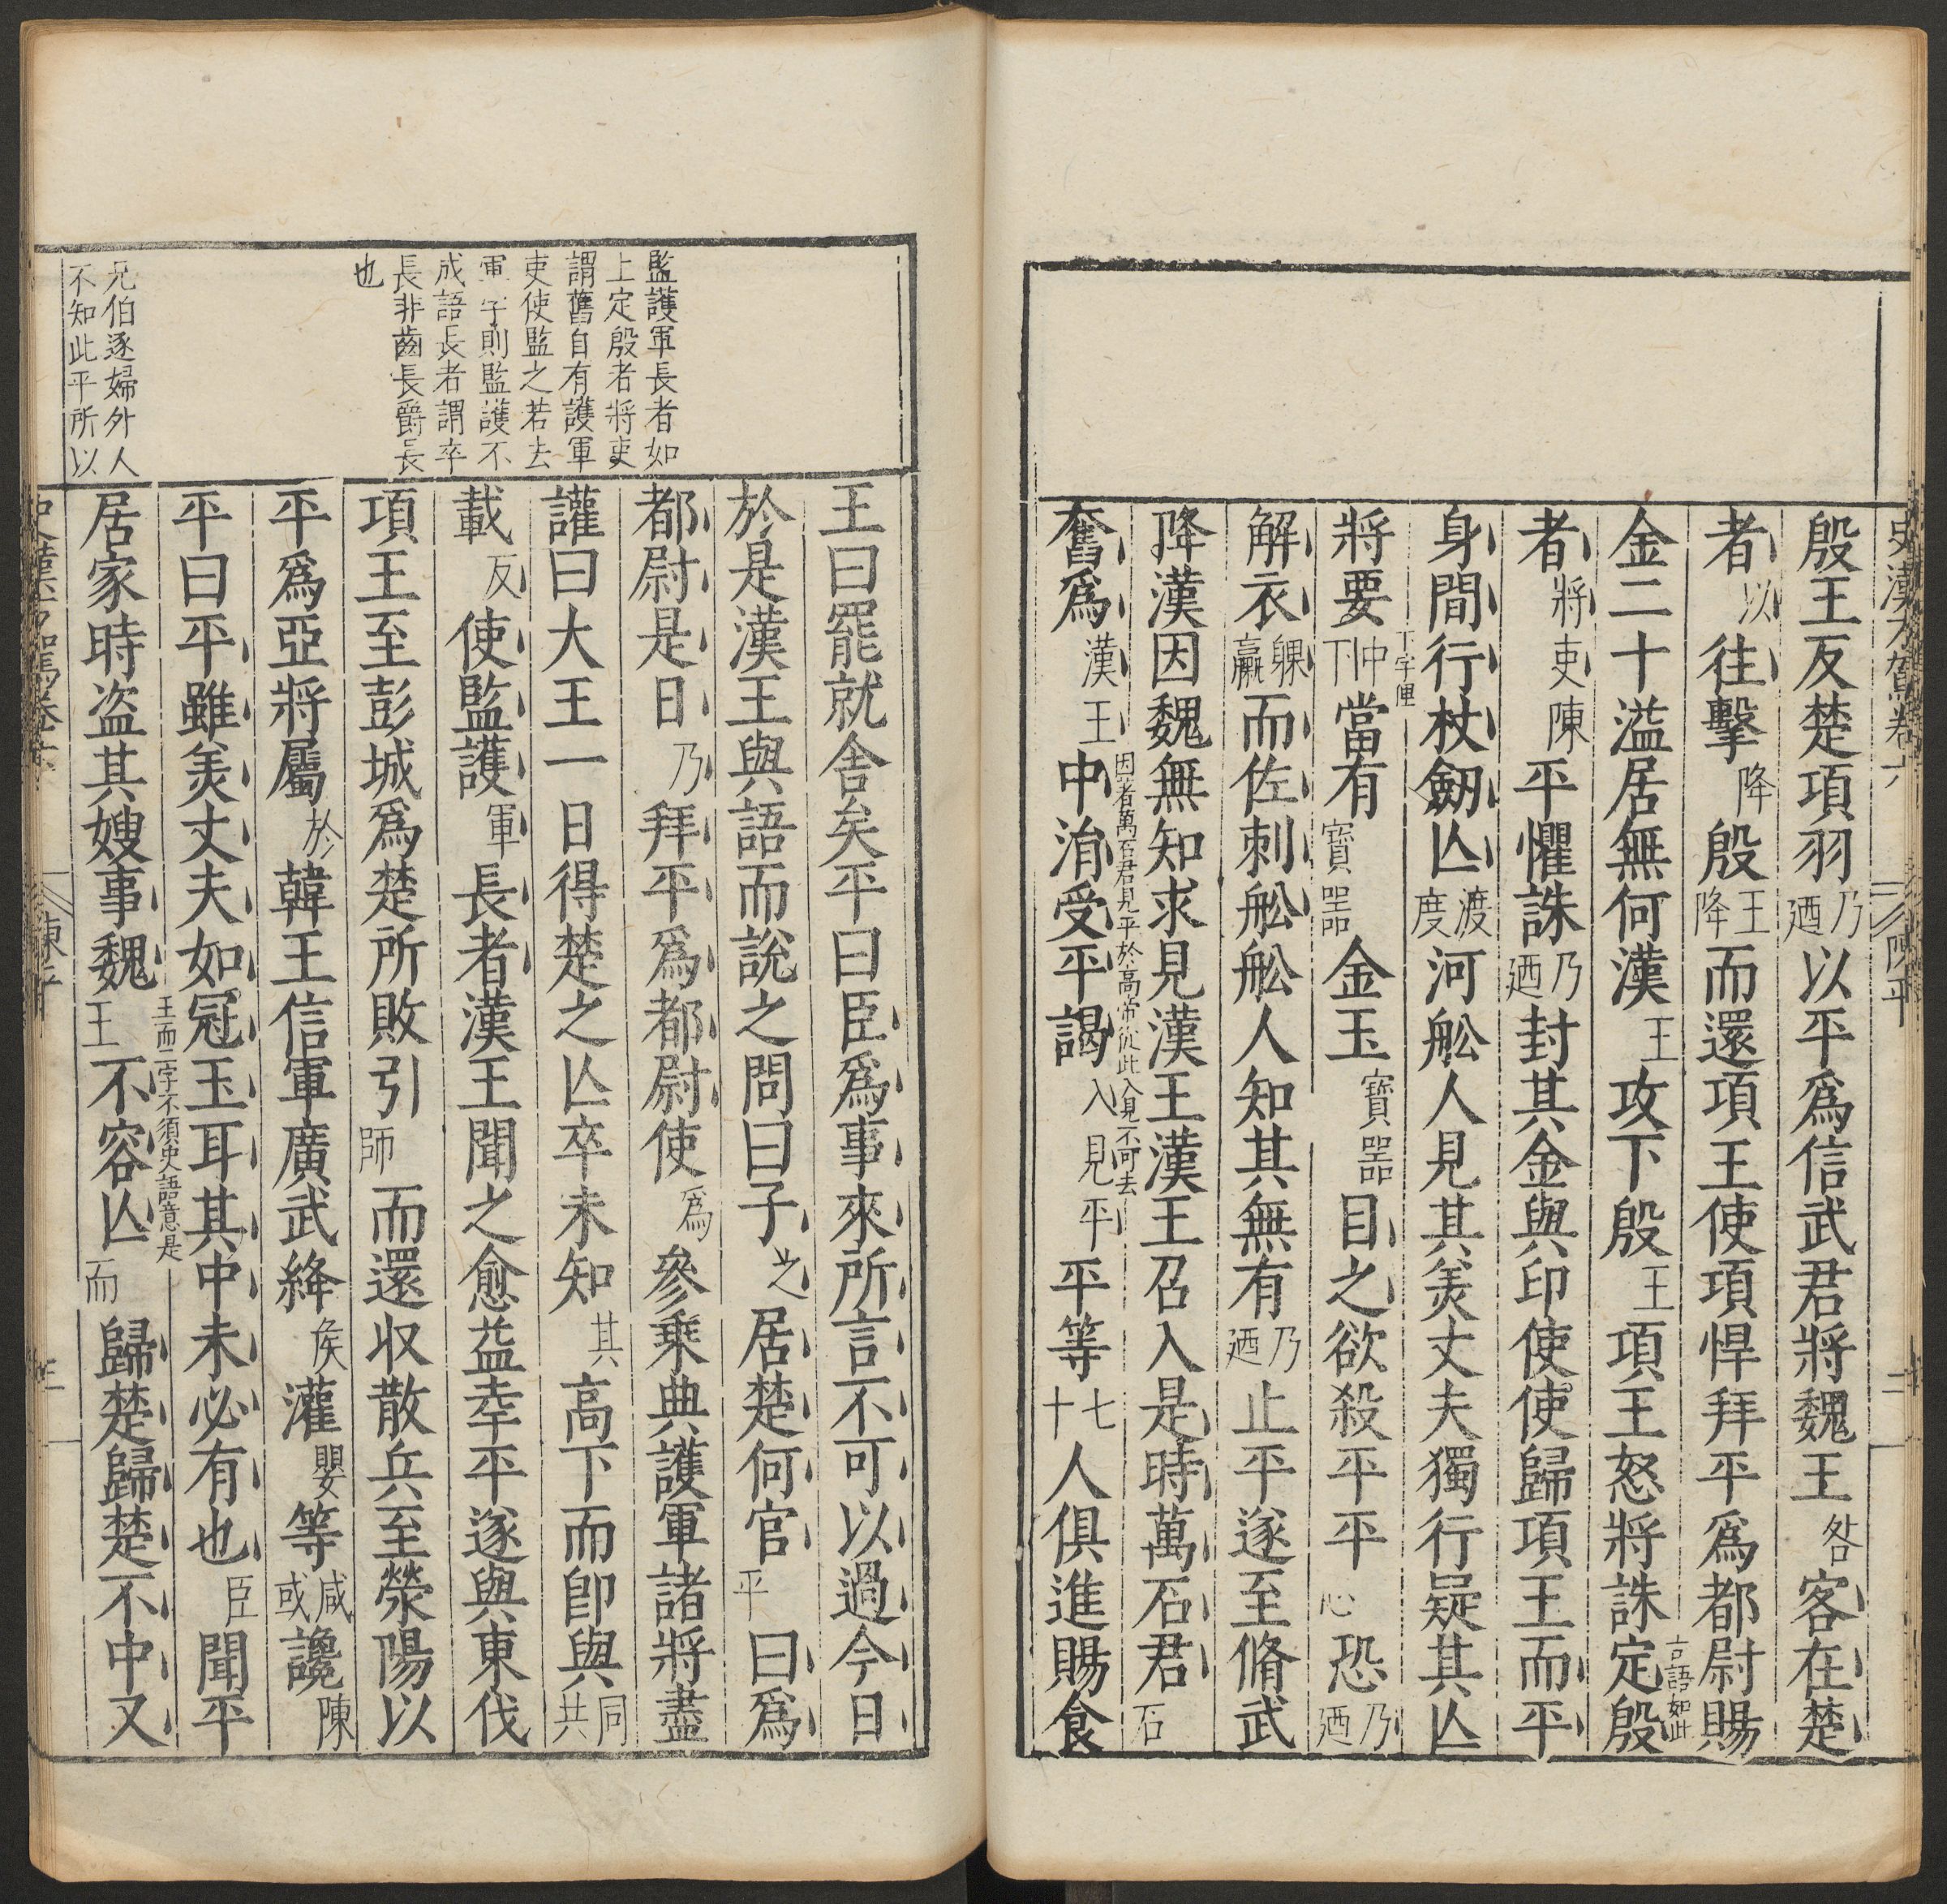 史漢方駕卷六
陳平
二
殷王反楚項羽乃廼以平爲信武君將魏王咎客在楚
者以往擊降殷王降而還項王使項悍拜平爲都尉賜
金二十溢居無何漢王攻下殷王項王怒將誅定殷
古語如此
者將吏陳平懼誅乃廼封其金與印使使歸項王而平
身間行杖劒亾渡度河舩人見其羙丈夫獨行疑其亾
下字俚
將要中下當有寶器金玉寶器目之欲殺平平心恐乃廼
解衣躶臝而佐刺舩舩人知其無有乃廼止平遂至脩武
降漢因魏無知求見漢王漢王召入是時萬石君石
因者萬石君見平於高帝從此入見不可去
奮爲漢王中涓受平謁入見平平等七十人俱進賜食
王曰罷就舍矣平曰臣爲事來所言不可以過今日
於是漢王與語而說之問曰子之居楚何官平曰爲
都尉是日乃拜平爲都尉使爲參乗典護軍諸將盡
讙曰大王一日得楚之亾卒未知其高下而卽與同共
載反使監護軍長者漢王聞之愈益幸平遂與東伐
項王至彭城爲楚所敗引師而還収散兵至滎陽以
平爲亞將屬於韓王信軍廣武絳侯灌嬰等咸或讒陳
平曰平雖羙丈夫如冠玉耳其中未必有也臣聞平
王而二字不須史語意是
居家時盗其嫂事魏王不容亾而歸楚歸楚不中又
監護軍長者如
上定殷者將吏
謂舊自有護軍
吏使監之若去
軍字則監護不
成語長者謂卒
長非齒長爵長
也
兄伯逐婦外人
不知此平所以